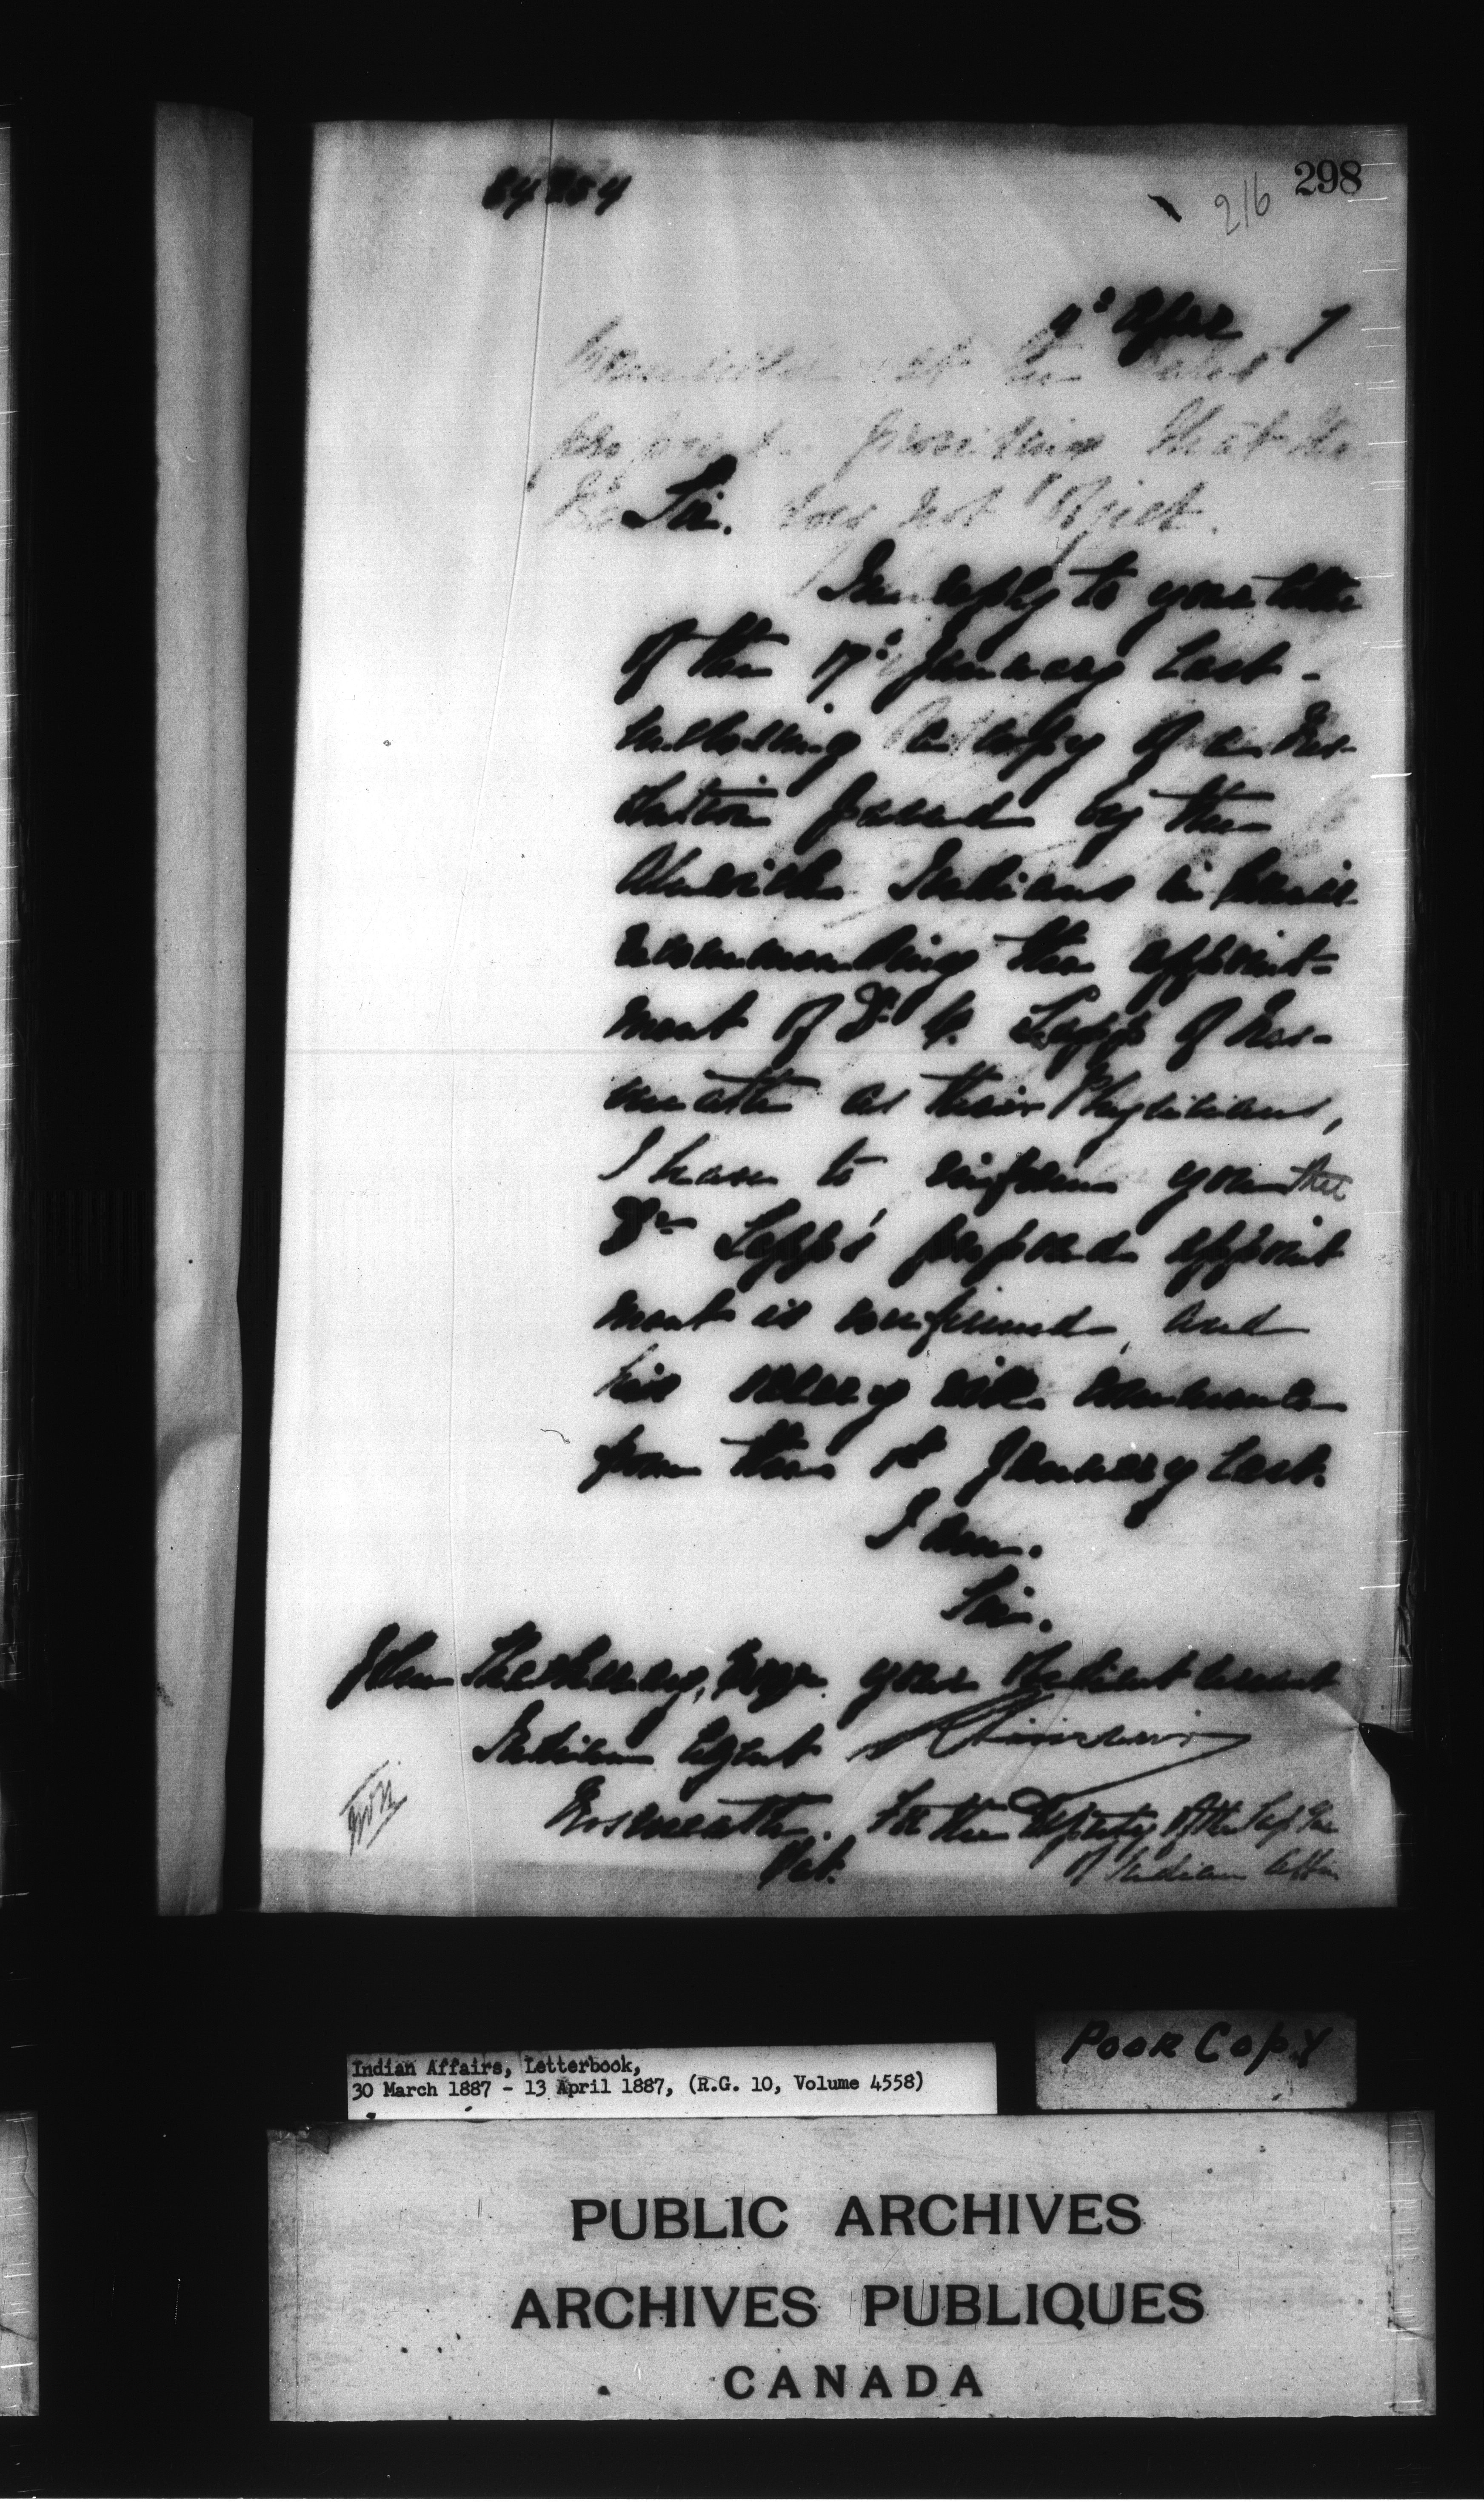 298
216
9th Apr 7
providing that the
Sir. does not object.
In reply to your letter
of the 17th January last -
enclosing a copy of a Res-
olution passed by the
Alnwick Indians in Council
recommending the appoint-
ment of Dr Lapp of Ros-
neath as their Physician,
I have to inform you that
Dr Lapp's proposed appoint
ment is confirmed, and
his salary will commence
from the 1st January last.
I am.
Sir.
John Thackeray, Esqr. your obedient servant
Indian Agent
Rosneath. For the Deputy of the Sup Gen
Ont. of Indian Affairs
Indian Affairs, Letterbook,
30 March 1887 - 13 April 1887, (R.G. 10, Volume 4558)
Poor Copy
PUBLIC ARCHIVES
ARCHIVES PUBLIQUES
CANADA